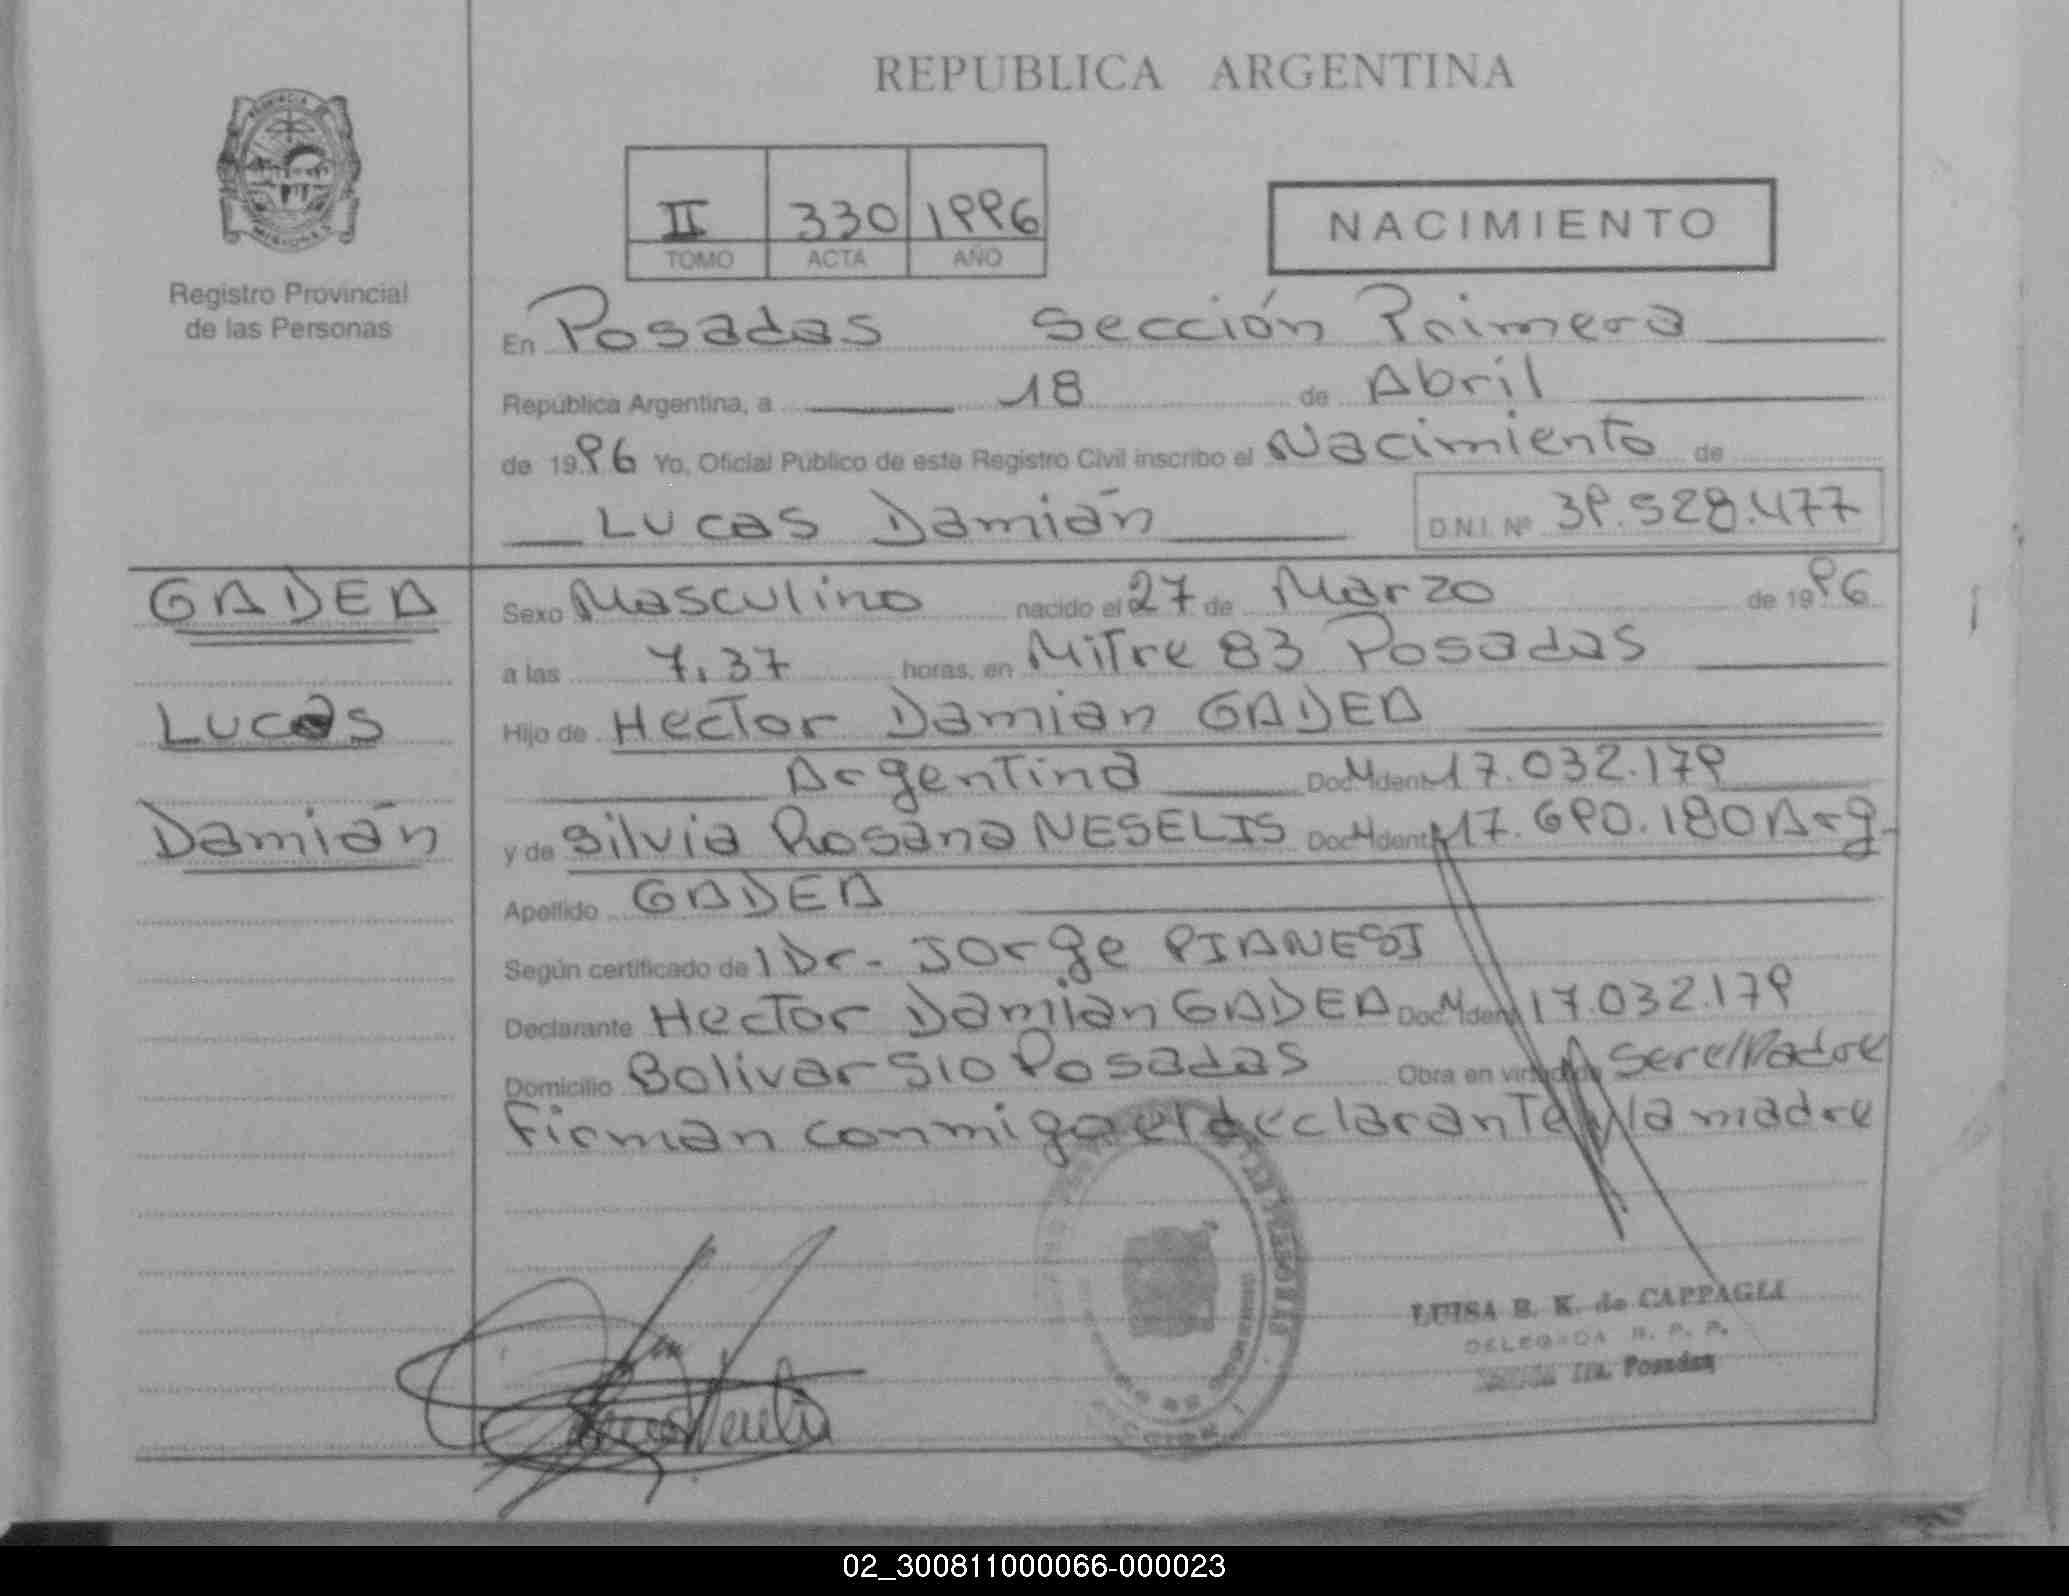 REPUBLICA ARGENTINA
PROVINCIA
MISIONES
Registro Provincial
de las Personas
II 330 1996
TOMO ACTA AÑO
NACIMIENTO
En Posadas Sección Primera
República Argentina, a 18 de Abril
de 1996 Yo, Oficial Público de este Registro Civil inscribo el Nacimiento de
Lucas Damián D.N.I. Nº 39.528.477
GADEA
Sexo Masculino nacido el 27 de Marzo de 1996
a las 7.37 horas, en Mitre 83 Posadas
Lucas
Hijo de Hector Damian GADEA
Argentina Doc M Ident 17.032.179
Damián
y de Silvia Rosana NESELIS Doc M Ident 17.690.180 Arg.
Apellido GADEA
Según certificado de l Dr. Jorge PIANESI
Declarante Hector Damian GADEA Doc M Ident 17.032.179
Domicilio Bolivar 510 Posadas Obra en virtud de Ser el Padre
Firman conmigo el declarante y la madre
LUISA B. K. de CAPPAGLI
DELEGADA R. P. P.
1ra. Posadas
02_300811000066-000023